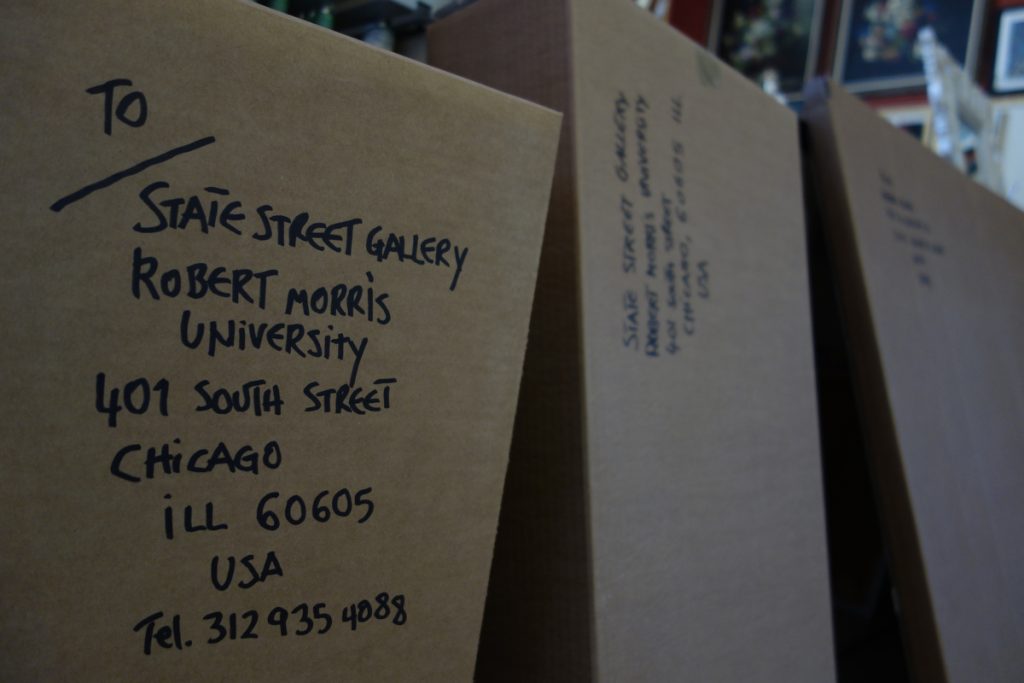 TO
STATE STREET GALLERY
ROBERT MORRIS
UNIVERSITY
401 SOUTH STREET
CHICAGO
ILL 60605
USA
Tel. 312 935 4088
STATE STREET GALLERY
ROBERT MORRIS UNIVERSITY
401 SOUTH STREET
CHICAGO, 60605 ILL
USA